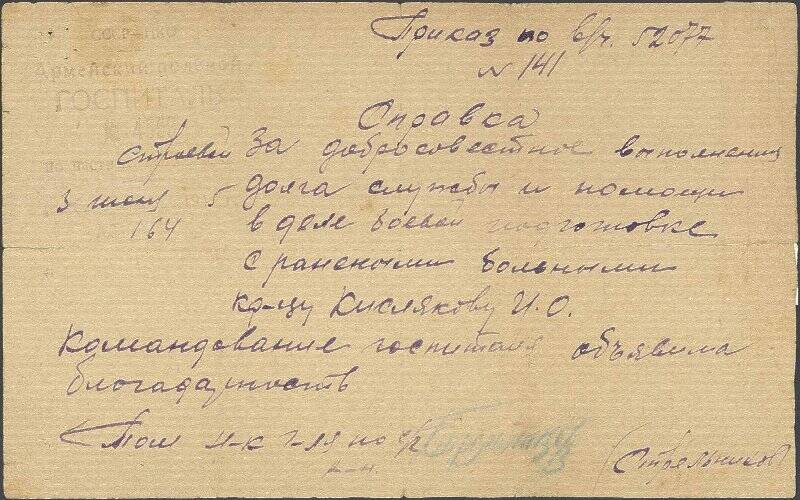 Приказ по в/ч. 52077
№ 141
СССР-НКО
Армейский полевой
ГОСПИТАЛЬ
Справка
строевой
3 июля 5
164
За добросовестное выполнения
долга службы и помощи
в деле боевой подготовке
с ранеными больными
кр-цу Кислякову И.О.
Командование госпиталя объявила
благодарность
Пом н-к г-ля по с/ч
Стрельников